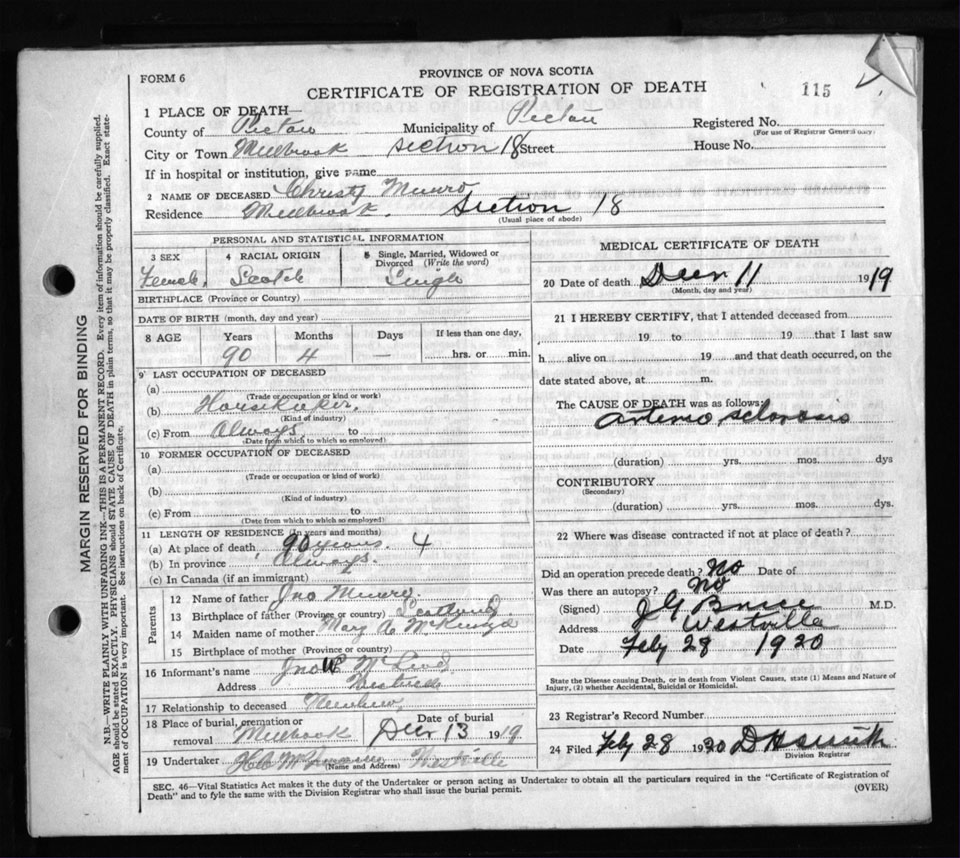 FORM 6
PROVINCE OF NOVA SCOTIA
CERTIFICATE OF REGISTRATION OF DEATH
115
1 PLACE OF DEATH—
County of Pictou Municipality of Pictou Registered No.
(For use of Registrar General only)
City or Town Millbrook Section 18 Street House No.
If in hospital or institution, give name
2 NAME OF DECEASED Christy Munro
Residence Millbrook. Section 18
(Usual place of abode)
PERSONAL AND STATISTICAL INFORMATION
3 SEX 4 RACIAL ORIGIN 5 Single, Married, Widowed or Divorced (Write the word)
Female. Scotch Single
BIRTHPLACE (Province or Country)
DATE OF BIRTH (month, day and year)
8 AGE Years Months Days If less than one day,
90 4 — hrs. or min.
9 LAST OCCUPATION OF DECEASED
(a)
(Trade or occupation or kind or work)
(b) Housekeeper.
(Kind of industry)
(c) From Always to
(Date from which to which so employed)
10 FORMER OCCUPATION OF DECEASED
(a)
(Trade or occupation or kind of work)
(b)
(Kind of industry)
(c) From to
(Date from which to which so employed)
11 LENGTH OF RESIDENCE (In years and months)
(a) At place of death 90 years. 4
(b) In province Always.
(c) In Canada (if an immigrant)
Parents
12 Name of father Jno Munro.
13 Birthplace of father (Province or country) Scotland
14 Maiden name of mother Mary A McKenzie
15 Birthplace of mother (Province or country)
16 Informant's name Jno
Address Westville
17 Relationship to deceased
18 Place of burial, cremation or removal Millbrook Date of burial Decr 13 1919
19 Undertaker Westville
(Name and Address)
MEDICAL CERTIFICATE OF DEATH
20 Date of death Decr 11 1919
(Month, day and year)
21 I HEREBY CERTIFY, that I attended deceased from
19 to 19 that I last saw
h alive on 19 and that death occurred, on the
date stated above, at m.
The CAUSE OF DEATH was as follows:
Arterio sclerosis
(duration) yrs. mos. dys
CONTRIBUTORY
(Secondary)
(duration) yrs. mos. dys.
22 Where was disease contracted if not at place of death?
Did an operation precede death? No Date of
Was there an autopsy? No
(Signed) M.D.
Address Westville
Date Feby 28 1920
State the Disease causing Death, or in death from Violent Causes, state (1) Means and Nature of
Injury, (2) whether Accidental, Suicidal or Homicidal.
23 Registrar's Record Number
24 Filed Feby 28 1920 D H Smith
Division Registrar
SEC. 46—Vital Statistics Act makes it the duty of the Undertaker or person acting as Undertaker to obtain all the particulars required in the "Certificate of Registration of
Death" and to fyle the same with the Division Registrar who shall issue the burial permit.
(OVER)
MARGIN RESERVED FOR BINDING
N.B.—WRITE PLAINLY WITH UNFADING INK—THIS IS A PERMANENT RECORD. Every item of information should be carefully supplied.
AGE should be stated EXACTLY. PHYSICIANS should STATE CAUSE OF DEATH in plain terms, so that it may be properly classified. Exact statement
of OCCUPATION is very important. See instructions on back of Certificate.